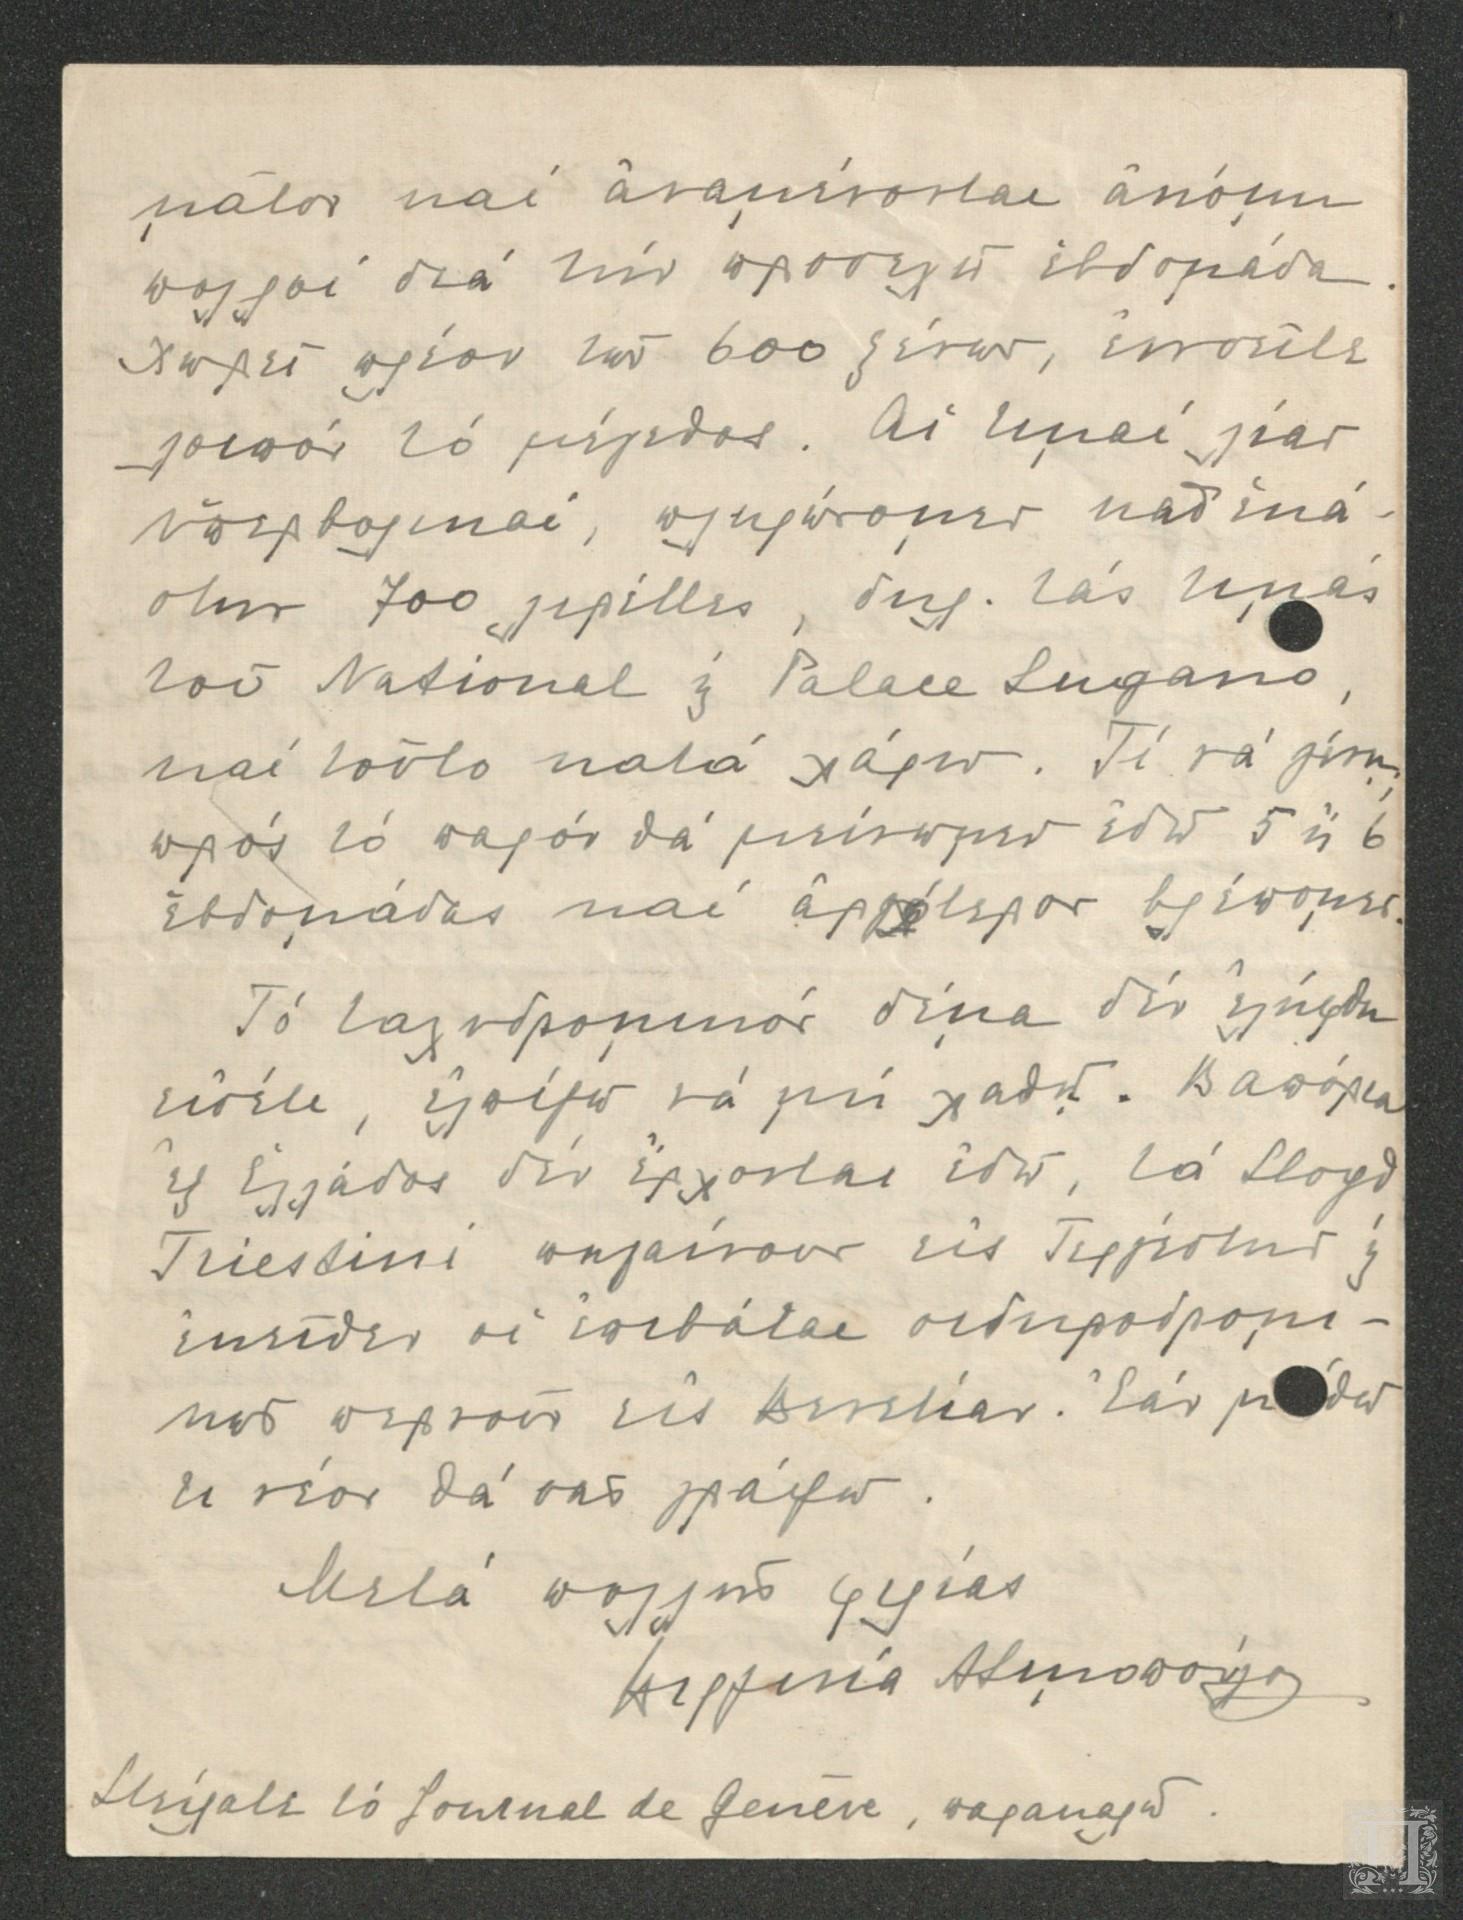 μᾶτον καί ἀναμένονται ἀκόμη
πολλοί διά τήν προσεχῆ ἑβδομάδα.
Χωρεῖ πλέον τῶν 600 ξένων, ἐννοεῖτε
λοιπόν τό μέγεθος. Αἱ τιμαί λίαν
ὑπερβολικαί, πληρώνομεν καθ' ἑκά-
στην 700 λιρέττες, δηλ. τάς τιμάς
τοῦ National ἤ Palace Lugano,
καί τοῦτο κατά χάριν. Τί νά γίνῃ;
πρός τό παρόν θά μείνωμεν ἐδῶ 5 ἤ 6
ἑβδομάδας καί ἀργότερον βλέπομεν.
Τό ταχυδρομικόν δέμα δέν ἐλήφθη
εἰσέτι, ἐλπίζω νά μή χαθῇ. Βαπόρια
ἐξ Ἑλλάδος δέν ἔρχονται ἐδῶ, τά Lloyd
Triestini πηγαίνουν εἰς Τεργέστην ἤ
ἐκεῖθεν οἱ ἐπιβάται σιδηροδρομι-
κῶς περνοῦν εἰς Βενετίαν. Ἐάν μάθω
τι νέον θά σᾶς γράψω.
Μετά πολλῆς φιλίας
Βεργινία
Στείλατε τό Journal de Genève, παρακαλῶ.